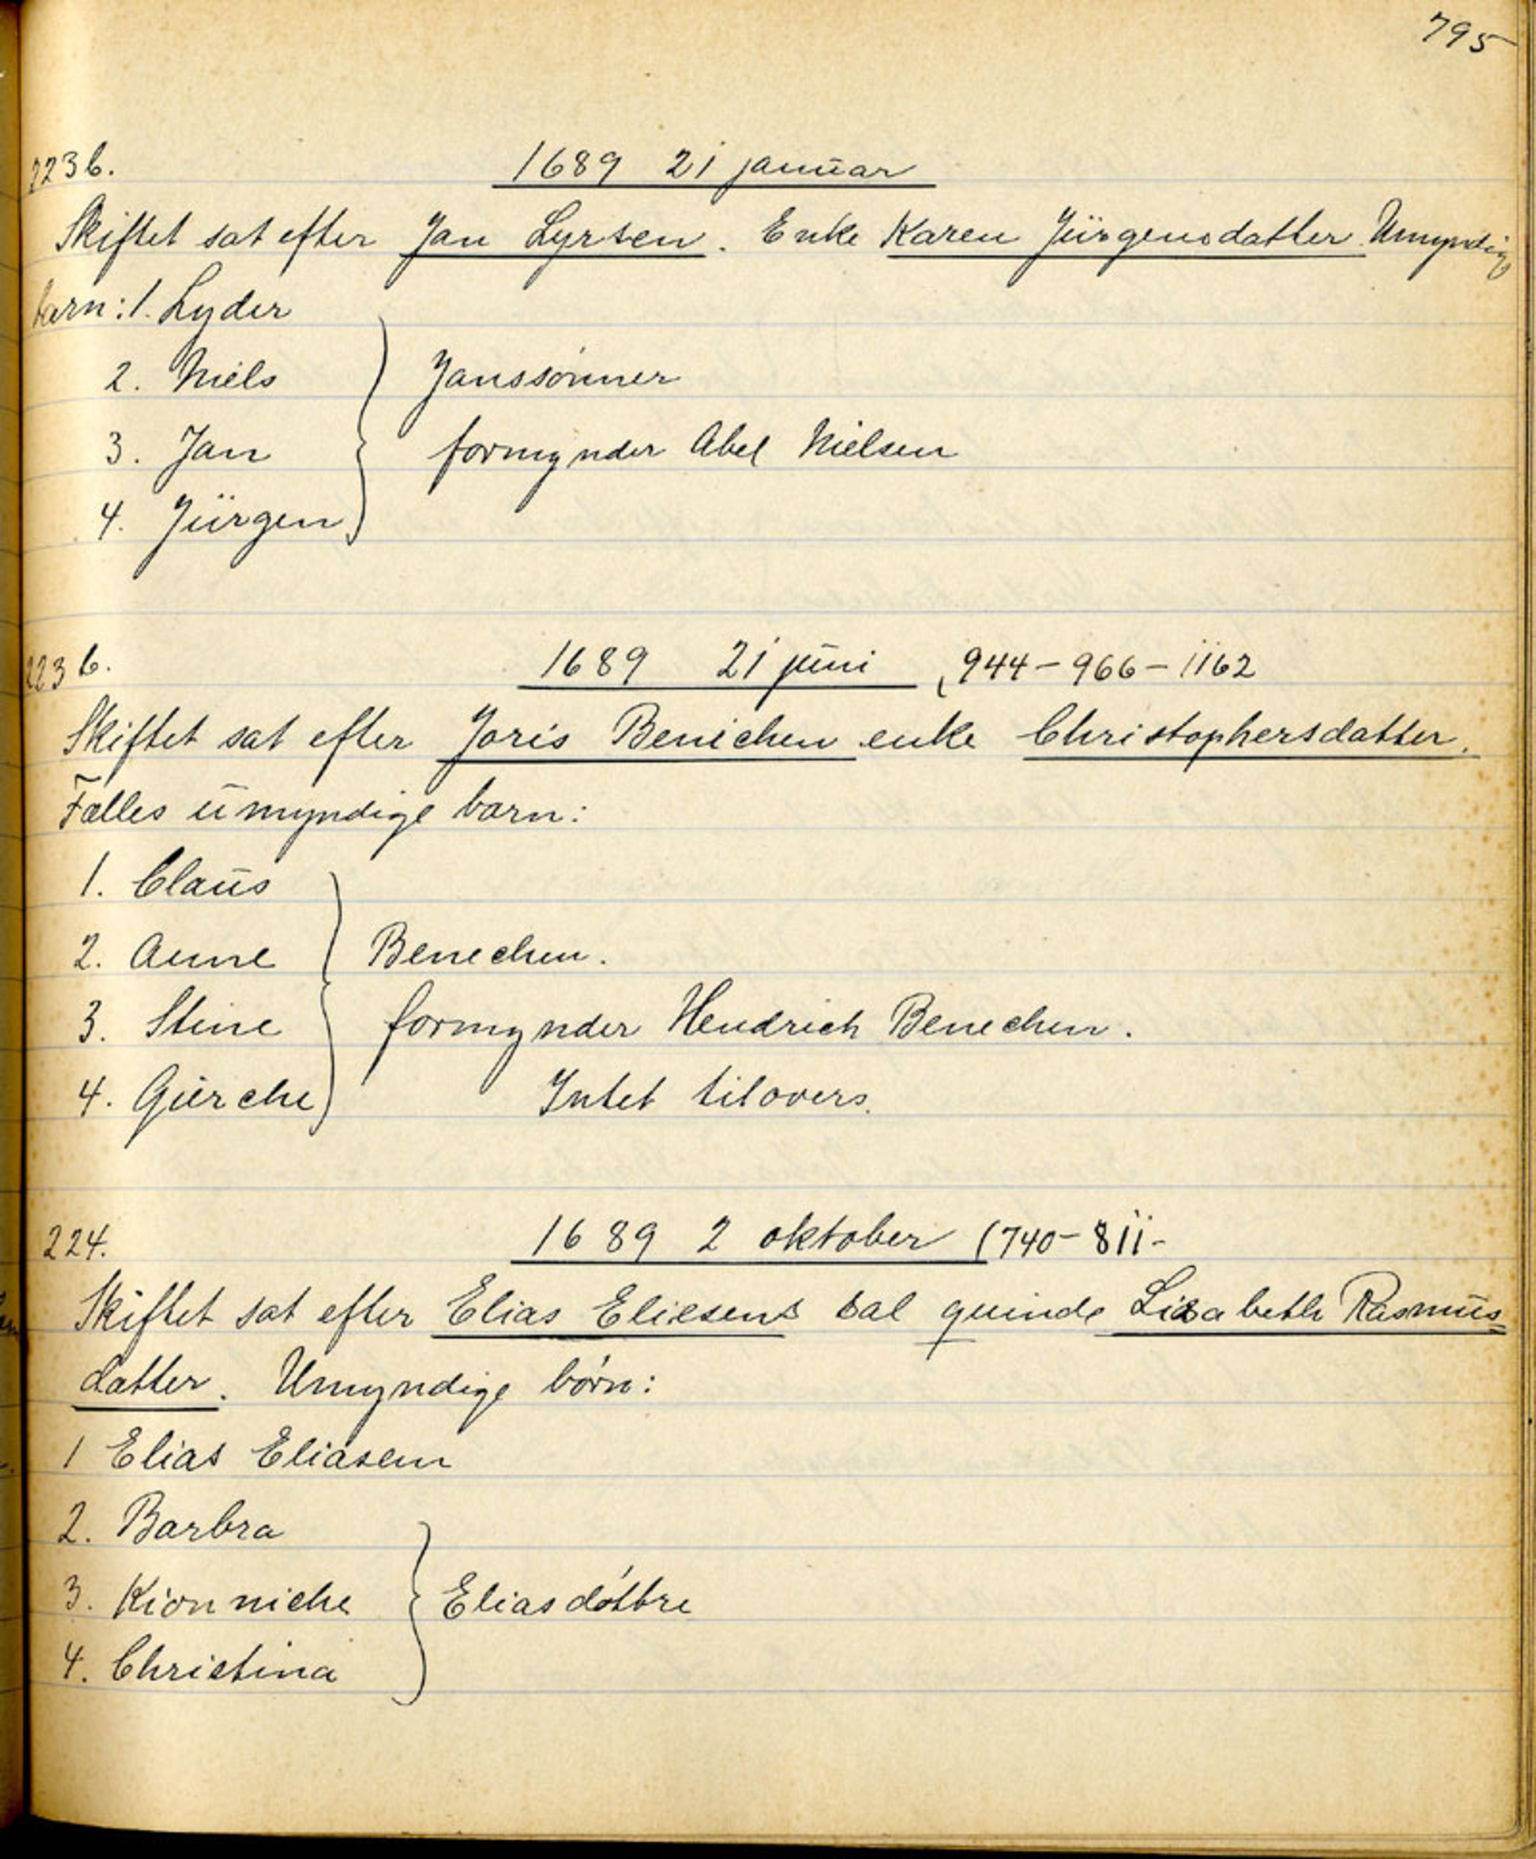 795
223 b. 1689 21 januar
Skiftet sat efter Jan Lyrsen. Enke Karen Jürgensdatter Umyndig
barn: 1. Lyder
2. Niels } Janssønner
3. Jan } formynder Abel Nielsen
4. Jürgen
223 b. 1689 21 juni (944 - 966 - 1162
Skiftet sat efter Joris Benichen enke Christophersdatter.
Fælles umyndige barn:
1. Claus
2. Anne } Benechen.
3. Stine } formynder Hendrich Benechen.
4. Gierche Intet tilovers.
224. 1689 2 oktober (740 - 811 -
Skiftet sat efter Elias Eliesens sal quinde Lisabeth Rasmus=
datter. Umyndige børn:
1 Elias Eliasem
2. Barbra
3. Kionniche } Eliasdøttre
4. Christina